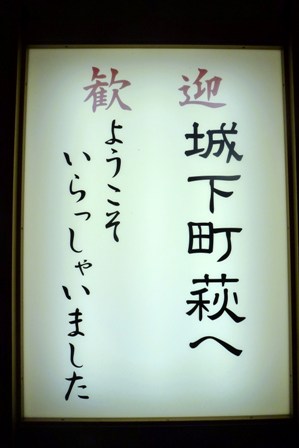 歓迎
城下町萩へ
ようこそ
いらっしゃいました